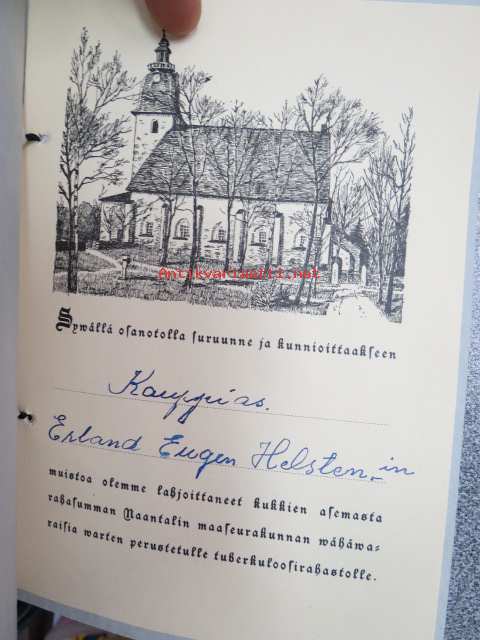 Antikvariaatti.net
Sywällä osanotolla suruunne ja kunnioittaakseen
Kauppias.
Erland Eugen Helsten-in
muistoa olemme lahjoittaneet kukkien asemasta
rahasumman Naantalin maaseurakunnan wähäwa-
raisia warten perustetulle tuberkuloosirahastolle.